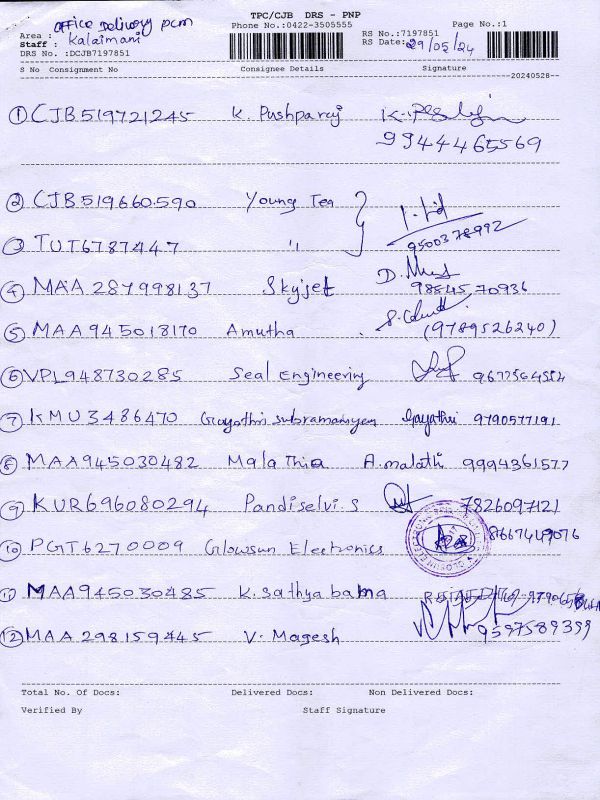 TPC/CJB DRS - PNP
Office Delivery pcm
Phone No.:0422-3505555 Page No.:1
Area : RS No.:7197851
Staff : Kalaimani RS Date: 29/05/24
DRS No. :DCJB7197851
S No Consignment No Consignee Details Signature
20240528--
1 CJB519721245 K. Pushparaj
9944465569
2 CJB519660590 Young Tea
3 TUT6787447 "
9500378992
4 MAA 287998137 Skyjet 98845 70936
5 MAA945018170 Amutha (9789526240)
6 VPL948730285 Seal Engineering
7 KMU3486470 Gayathri subramaniyam Gayathri 9790577191
8 MAA945030482 Malathia A.malathi 9994361577
9 KUR696080294 Pandiselvi.s 7826097121
8667449076
10 PGT6270009 Glowsun Electronics
11 MAA945030485 K. Sathyabama
12 MAA 298159445 V. Magesh 9597589399
Total No. Of Docs: Delivered Docs: Non Delivered Docs:
Verified By Staff Signature